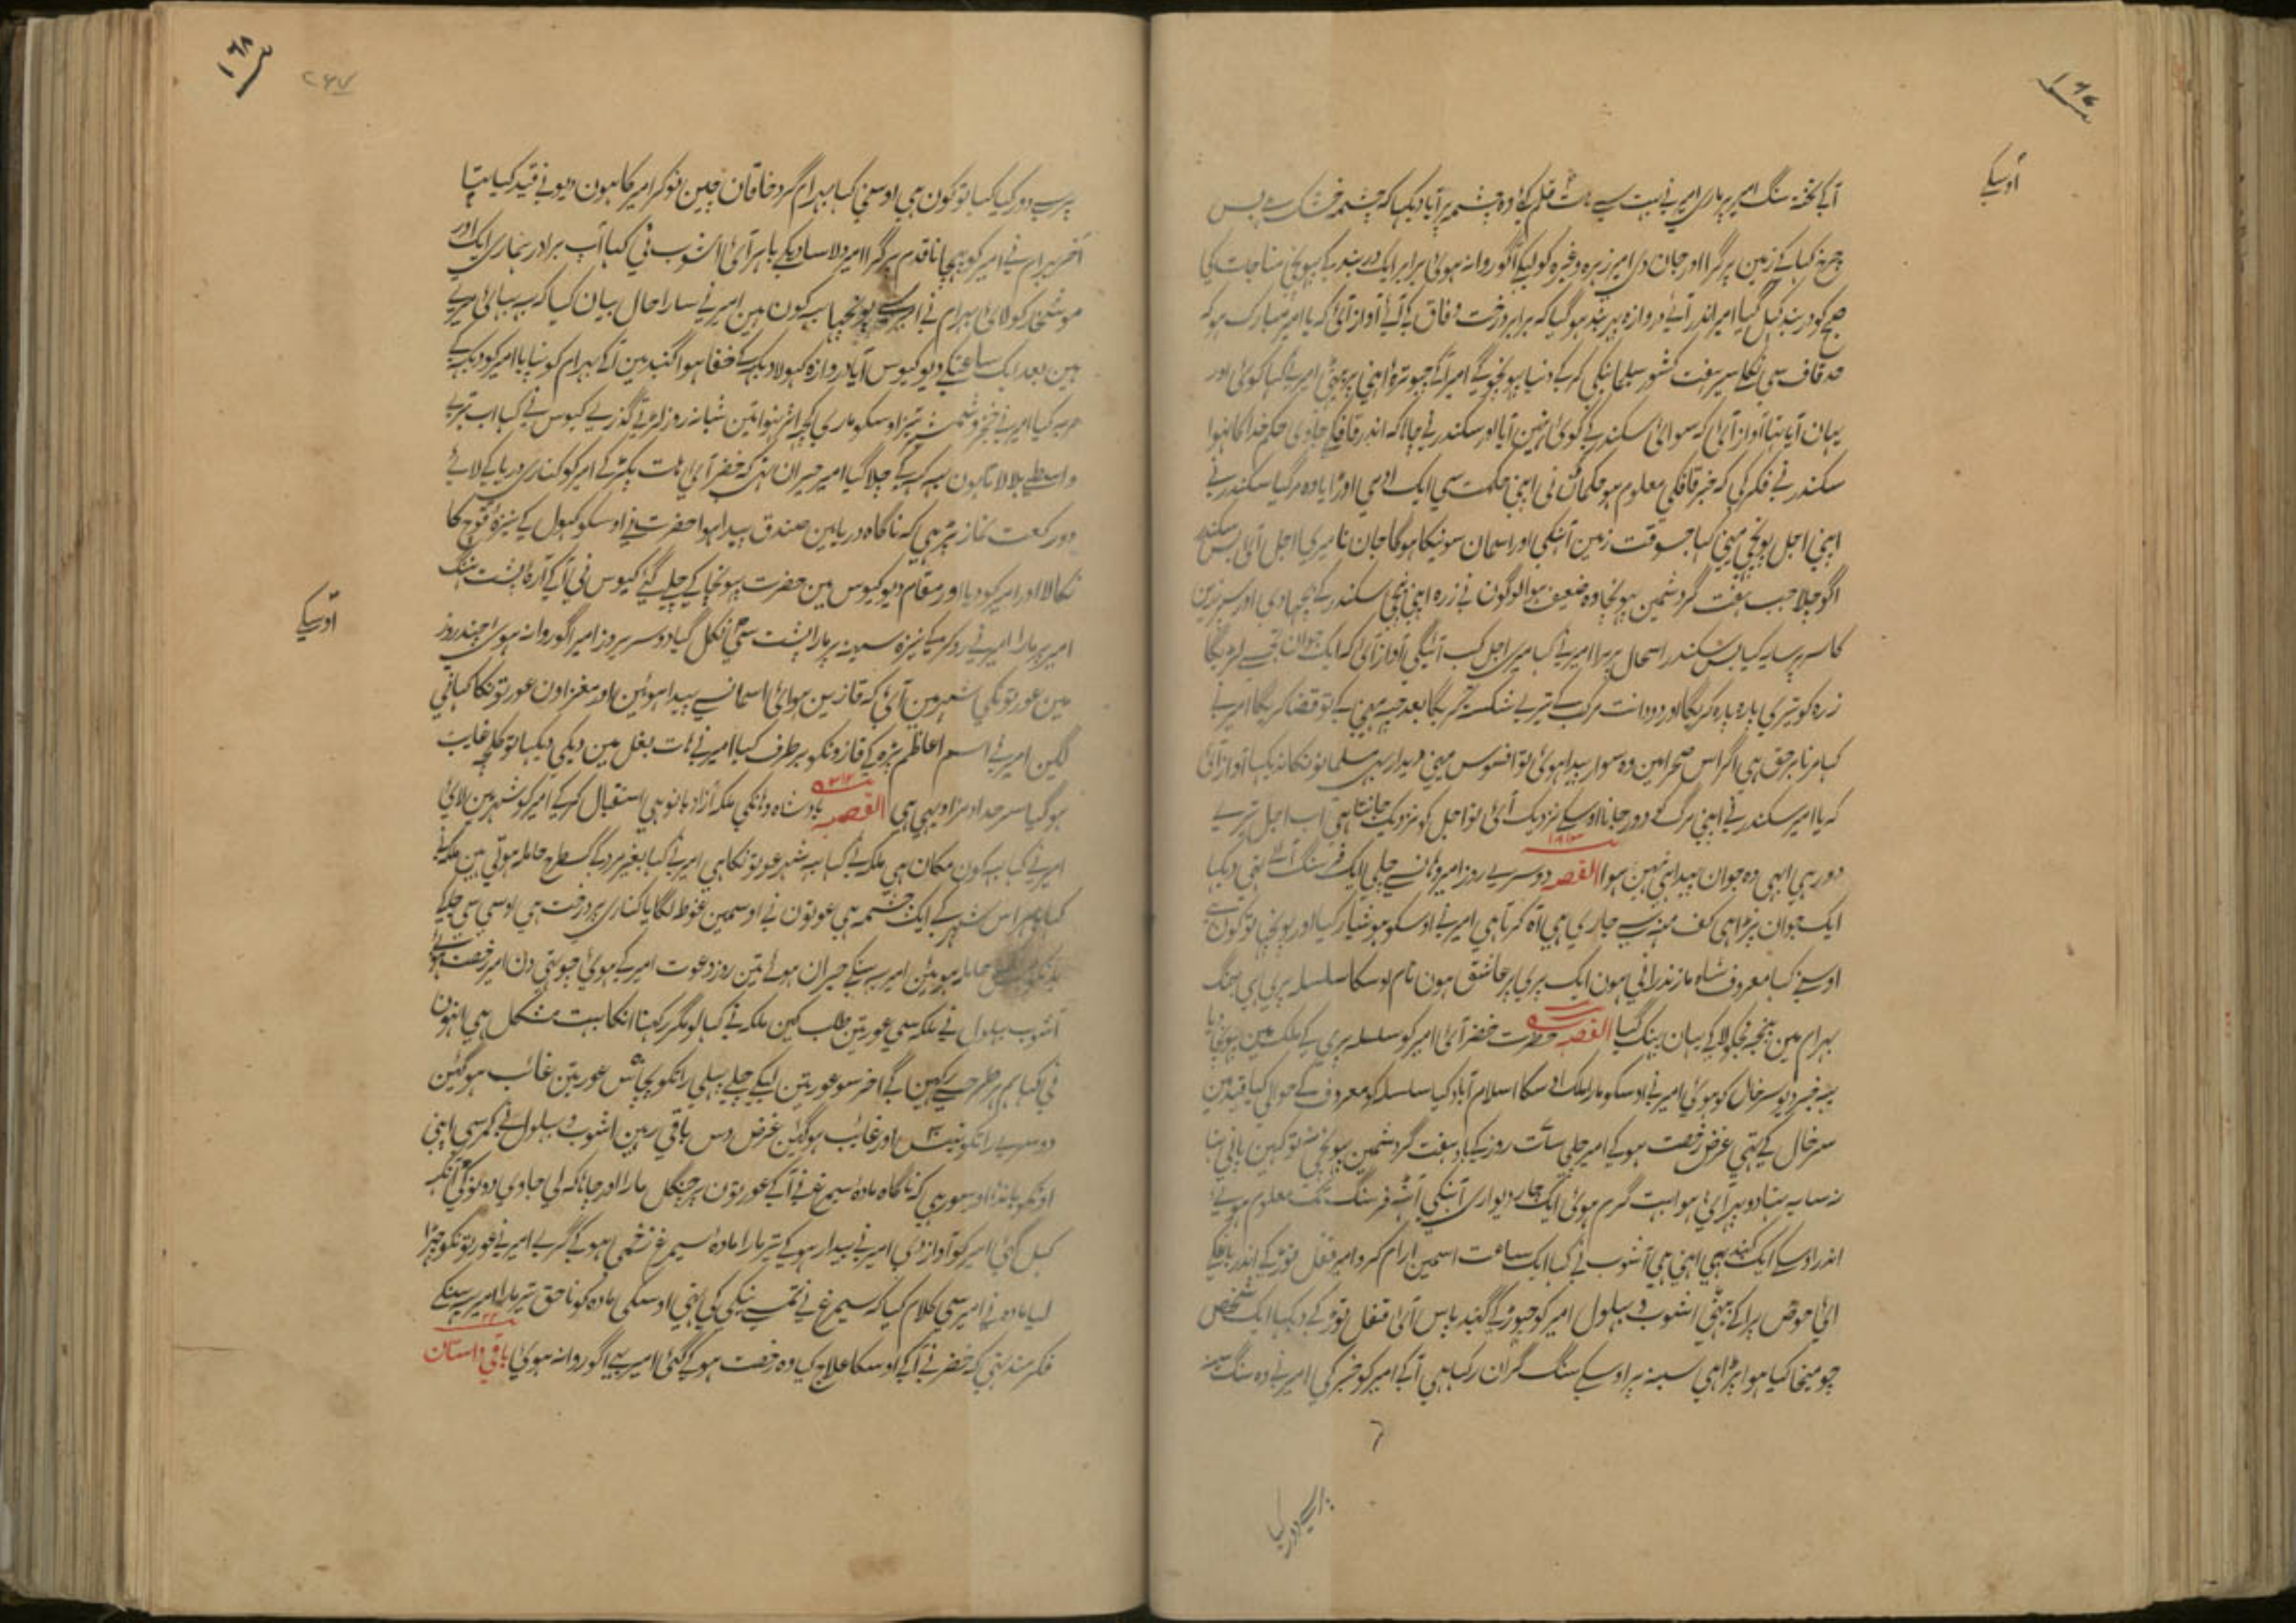 ۱۶۷
اوسکے
آکے تختہ سنگ امیر پر ماری امیر نے ہیبت سے ہات قلم کئے وہ چشمہ پر آیا دیکہا کہ چشمہ خشک ہے پس
چرخ کہا کے زمین پر گرا اور جان دی امیر زہرہ وغیرہ کو لیکے آگو روانہ ہوئ برابر ایک دربند کے پہونچے مناجات کی
صبح کو دربند کہل گیا امیر اندر آئے دروازہ پہر بند ہو گیا کہ برابر درخت وقاق کے آئے آواز آئ کہ یا امیر مبارک ہو کہ
حد قاف سے نکلے سیر ہفت کشور سلیمانیکی کر کے دنیا پہونچو گے امیر آگے چبوترۂ اہنی پر بیٹھے امیر نے کہا کوئ اور
یہان آیا تہا آواز آئ کہ سوائ سکندر کے کوئ نہین آیا اور سکندر نے چاہا کہ اندر قاف کے جاوی حکم خدا کا نہوا
سکندر نے فکر کی کہ خبر قاف کی معلوم ہو حکمائ نی اپنی حکمت سی ایک ادمی اوڑایا وہ مر گیا سکندر نے
اپنی اجل پونچہی کہا جسوقت زمین آہنکی اور اسمان سونیکا ہوگا جان نا میری اجل آئ پس سکندر
اگو چلا جب ہفت گرد شمین پہونچا وہ ضعیف ہوا لوگون نے زرہ اپنی نیچے سکندر کے بچہادی اور سپر زرین
کا سر پر سایہ کیا پس سکندر اسحال پر مرا امیر نے کہا میری اجل کب آئیگی آواز آئ کہ ایک جوان تجہسے لڑیگا
زرہ کو تیری پارہ پارہ کریگا اور دو دانت مرکب کے تیرے شکستہ کریگا بعد چہ مہینے کے تو قضا کریگا امیر نے
کہا مرنا برحق ہی اگر اس صحرا مین وہ سوار پیدا ہوئ تو افسوس مینے دیدار بہی مسلمانونکا نہ دیکہا آواز آئ
کہ یا امیر سکندر نے اپنی مرگ کو دور جانا اوسکے نزدیک آئ تو اجل کو نزدیک جانتا ہی اب اجل تیرے
دور ہی ابہی وہ جوان پیدا بہی نہین ہوا القصہ دوسرے روز امیر وہان سے چلے ایک فرسنگ آئے تہی دیکہا
ایک جوان پڑا ہی کف منہ سے جاری ہی آہ کرتا ہی امیر نے اوسکو ہوشیار کیا اور پونچہا تو کون ہے
اوسنے کہا معروف شاہ مازندرانی ہون ایک پری پر عاشق ہون نام اوسکا سلسلہ پری ہی جنگ
بہرام مین پنجہ نجکو لاکے یہان پہینک گیا القصہ حضرت خضر آئ امیر کو سلسلہ پری کے ملک مین پہونچا دیا
یہ خبر دیو سرخال کو ہوئ امیر نے اوسکو مارا ملک اوسکا اسلام آباد کیا سلسلہ کو معروف کے حوالی کیا قید مین
سرخال کے تہی غرض رخصت ہو کے امیر چلے سات روز کے بعد ہفت گرد شمین پہونچے نہ تو کہین پانی تہا
نہ سایہ تہا دوپہر آئ ہوا بہت گرم ہوئ ایک چار دیواری آہنکی آٹہ فرسنگ تک معلوم ہوئے
اندر اوسکے ایک گنبد بہی اہنی ہی آشوب نے کہا ایک ساعت اسمین ارام کرو امیر قفل توڑ کے اندر باغکے
آئ حوض پر آکے بیٹھے اشوب و بہلول امیر کو چہوڑ کے گنبد پاس آئ قفل توڑ کے دیکہا ایک شخص
چومیخا کیا ہوا پڑا ہی سینہ پر اوسکے سنگ گران رکہا ہی آکے امیر کو خبر کی امیر نے وہ سنگ سینہ
۱۶۸
۲۶۷
پر سے دور کیا کہا تو کون ہی اوسنی کہا بہرام گرد خاقان چین نوکر امیر کا ہون دیو نے قید کیا تہا
آخر بہرام نے امیر کو پہچانا قدم پر گرا امیر دلاسا دیکے باہر آئ اشوب نی کہا آب برادر ہماری ایک اور
موشخار کو لائ بہرام نے امیر سے پونچہا یہ کون ہین امیر نے سارا حال بیان کیا کہ یہ بہائ میرے
ہین بعد ایک ساعتکے دیو کیوس آیا دروازہ کہولا دیکہ کے خفا ہوا گنبد مین آکے بہرام کو نپایا امیر کو دیکہہ کے
حربہ کیا امیر نے خنجر و شمشیر و تیر اوسکو ماری کچہ اثر نہوا تین شبانہ روز لڑتے گذرے کیوس نے کہا اب تیرے
واسطے بلا لاتا ہون یہہ کہہ کے چلا گیا امیر حیران تہے کہ خضر آئ ہات پکڑ کے امیر کو کنارے دریا کے لائے
دو رکعت نماز پڑہی کہ ناگاہ دریا مین صندق پیدا ہوا حضرت نے اوسکو کہول کے نیزۂ نوح کا
نکالا اور امیر کو دیا اور مقام دیو کیوس مین حضرت پہونچا کے چلے گئے کیوس نی آکے آرۂ پشت نہنگ
اوسکے
امیر پر مارا امیر نے رد کر کے نیزہ سینہ پر مارا پشت سے نکل گیا دوسرے روز امیر اگو روانہ ہوئ چند روز
مین عورتونکی شہر مین آئ کہ قازین ہوائ اسمان سے پیدا ہوئین اور مغز اون عورتونکا کہانے
لگین امیر نے اسم اعاظم پڑہ کے قازونکو برطرف کیا امیر نے ہات بغل مین دیکے دیکہا تو کلچہ غایب
ہو گیا سرحد ادمزاد یہی ہی القصہ بادشاہ وہانکی ملکہ آزاد بانو ہی استقبال کر کے امیر کو شہر مین لائ
امیر نے کہا یہ کون مکان ہی ملکہ نے کہا یہ شہر عورتونکا ہی امیر نے کہا بغیر مرد کے کسطرح حاملہ ہوتی ہین ملکہ نے
کہا باہر اس شہر کے ایک چشمہ ہی عورتون نے اوسمین غوطہ لگایا کناری پر درخت ہی اوسی سے چپکے
حاملہ ہوئین امیر یہ سنکے حیران ہوئے تین روز دعوت امیر کے ہوئ چوتہی دن امیر رخصت ہوئے
آشوب بہلول نے ملکہ سی عورتین طلب کین ملکہ نے کہا لو مگر رکہنا انکا بہت مشکل ہی انہون
نی کہا ہم ہر طرح سے رکہین گے اخر سو عورتین لیکے چلے پہلی راتکو پچاس عورتین غائب ہو گئین
دوسرے راتکو اور غائب ہو گئین غرض دس باقی رہین اشوب و بہلول نے کمر سی اپنی
اونکو باندہا اور سو رہی کہ ناگاہ مادہ سیمرغ نے آکے عورتون پر چنگل مارا اور چاہا کہ لی جاوی دونونکی آنکہ
کہل گئ امیر کو آواز دی امیر نے بیدار ہو کے تیر مارا مادہ سیمرغ زخمی ہو کے گرے امیر نے عورتونکو چہڑا
لیا مادہ نے امیر سی کلام کیا کہ سیمرغ نے تمسے نیکی کی تہی اوسکی مادہ کو ناحق تیر مارا امیر یہ سنکے
فکرمند تہے کہ خضر نے آکے اوسکا علاج کیا وہ رخصت ہو کے گئ امیر بہی اگو روانہ ہوئ باقی داستان